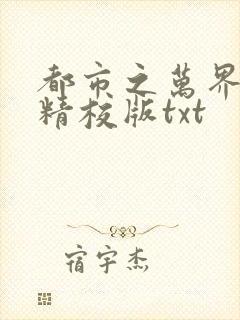 都市之萬界
精校版txt
宿宇杰